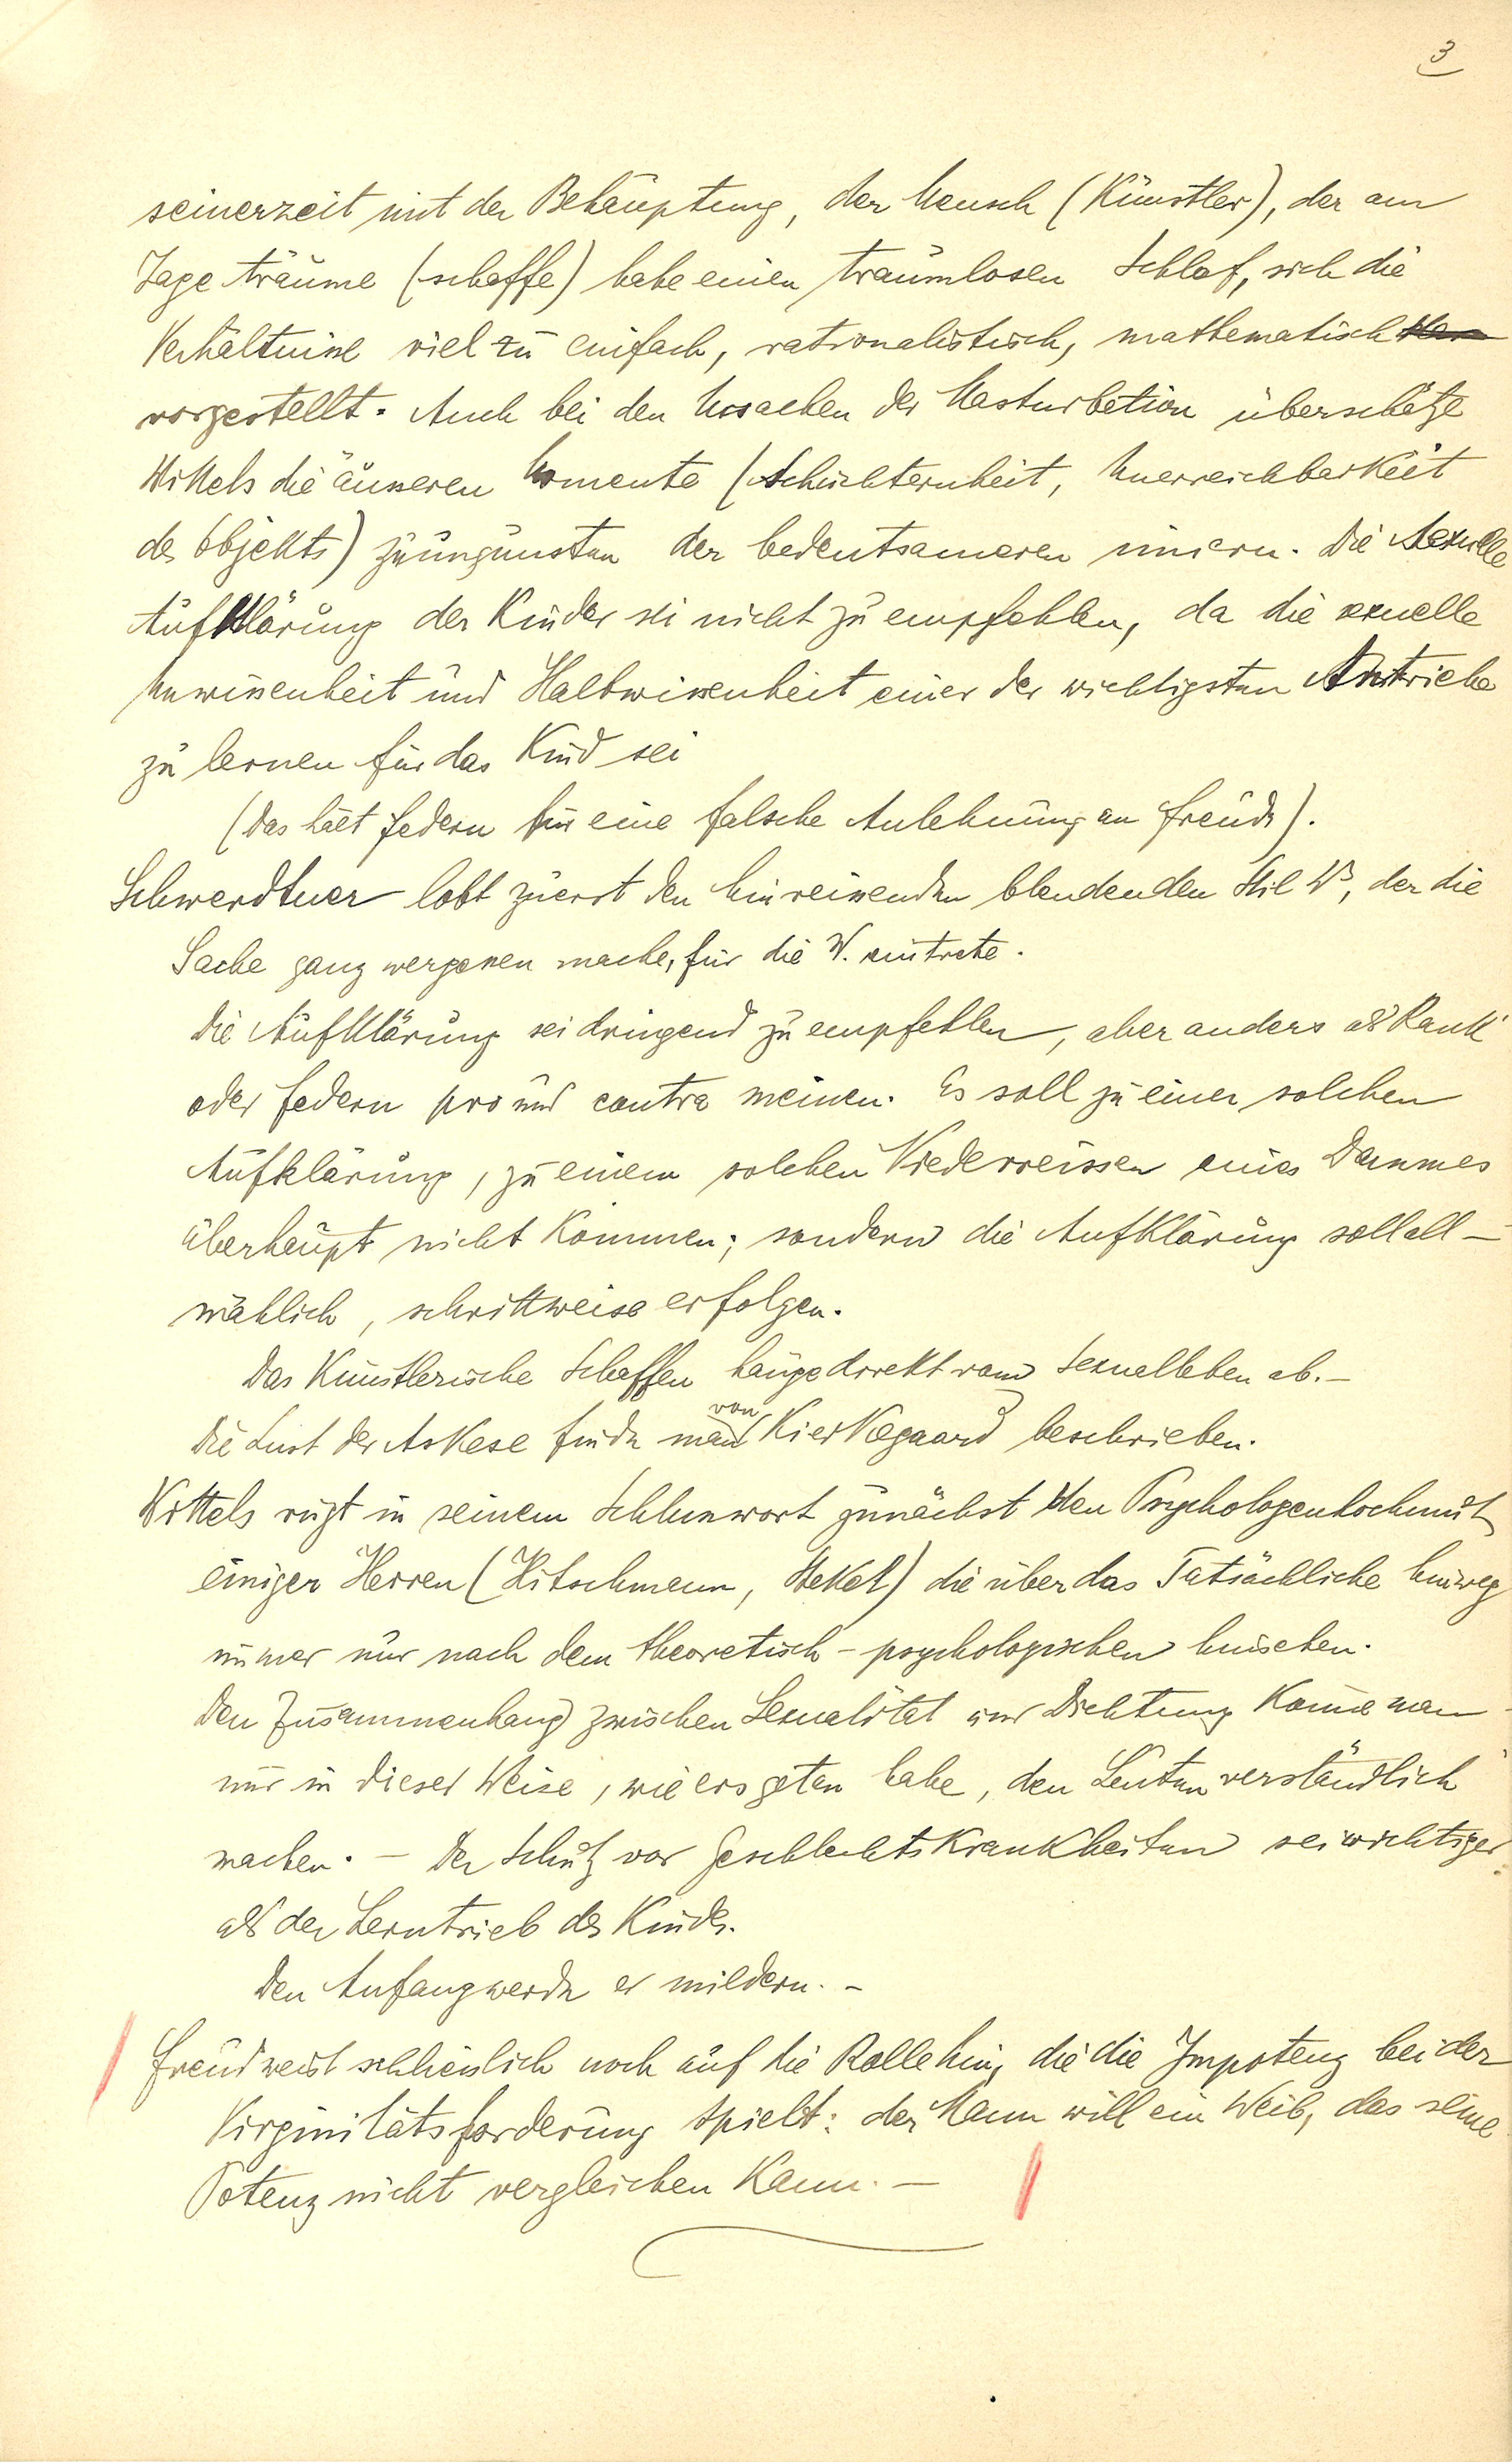 3
seinerzeit mit der Behauptung, der Mensch (Künstler), der am
Tage träume (schaffe) habe einen traumlosen Schlaf, sich die
Verhältnisse viel zu einfach, rationalistisch, mathematisch
vorgestellt. Auch bei den Ursachen der Masturbation überschätze
Wittels die äusseren Momente (Schüchternheit, Unerreichbarkeit
des Objekts) zuungunsten der bedeutsameren innern. Die sexuelle
Aufklärung der Kinder sei nicht zu empfehlen, da die sexuelle
Unwissenheit und Halbwissenheit einer der wichtigsten Antriebe
zu lernen für das Kind sei
(Das hält Federn für eine falsche Anlehnung an Freud).
Schwerdtner lobt zuerst den hinreissenden blendenden Stil W's, der die
Sache ganz vergessen mache, für die W. eintrete.
Die Aufklärung sei dringend zu empfehlen, aber anders als Rank
oder Federn pro und contra meinen. Es soll zu einer solchen
Aufklärung, zu einem solchen Niederreissen eines Dammes
überhaupt nicht kommen; sondern die Aufklärung soll all-
mählich, schrittweise erfolgen.
Das künstlerische Schaffen hänge direkt vom Sexualleben ab. –
Die Lust der Askese finde man von Kierkegaard beschrieben.
Wittels rügt in seinem Schlusswort zunächst den Psychologenhochmut
einiger Herren (Hitschmann, Stekel) die über das Tatsächliche hinweg
immer nur nach dem theoretisch-psychologischen hinsehen.
Den Zusammenhang zwischen Sexualität und Dichtung könne man
nur in dieser Weise, wie ers getan habe, den Leuten verständlich
machen. – Der Schutz vor Geschlechtskrankheiten sei wichtiger
als der Lerntrieb des Kindes.
Den Anfang werde er mildern. –
Freud weist schliesslich noch auf die Rolle hin, die die Impotenz bei der
Virginitätsforderung spielt: der Mann will ein Weib, das seine
Potenz nicht vergleichen kann. –